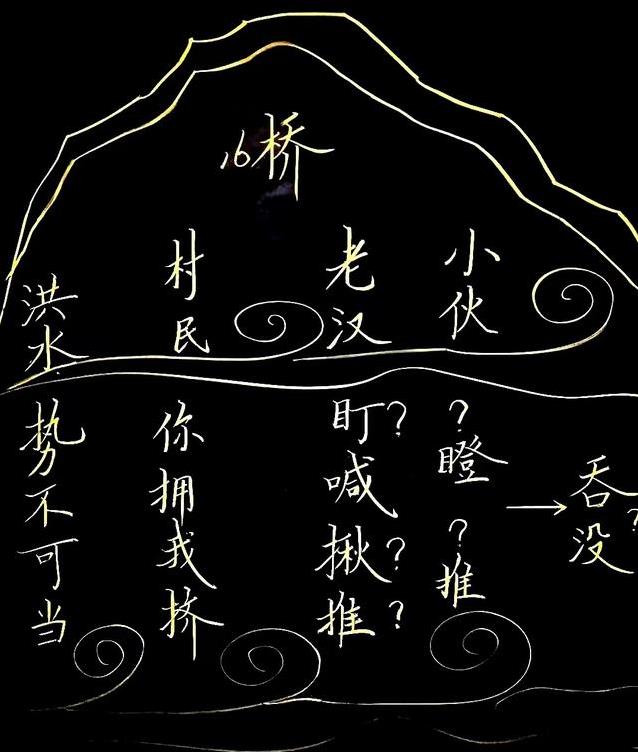 16桥
洪水
村民
老汉
小伙
势不可当
你拥我挤
盯?喊揪?推?
?瞪?推
→吞没?